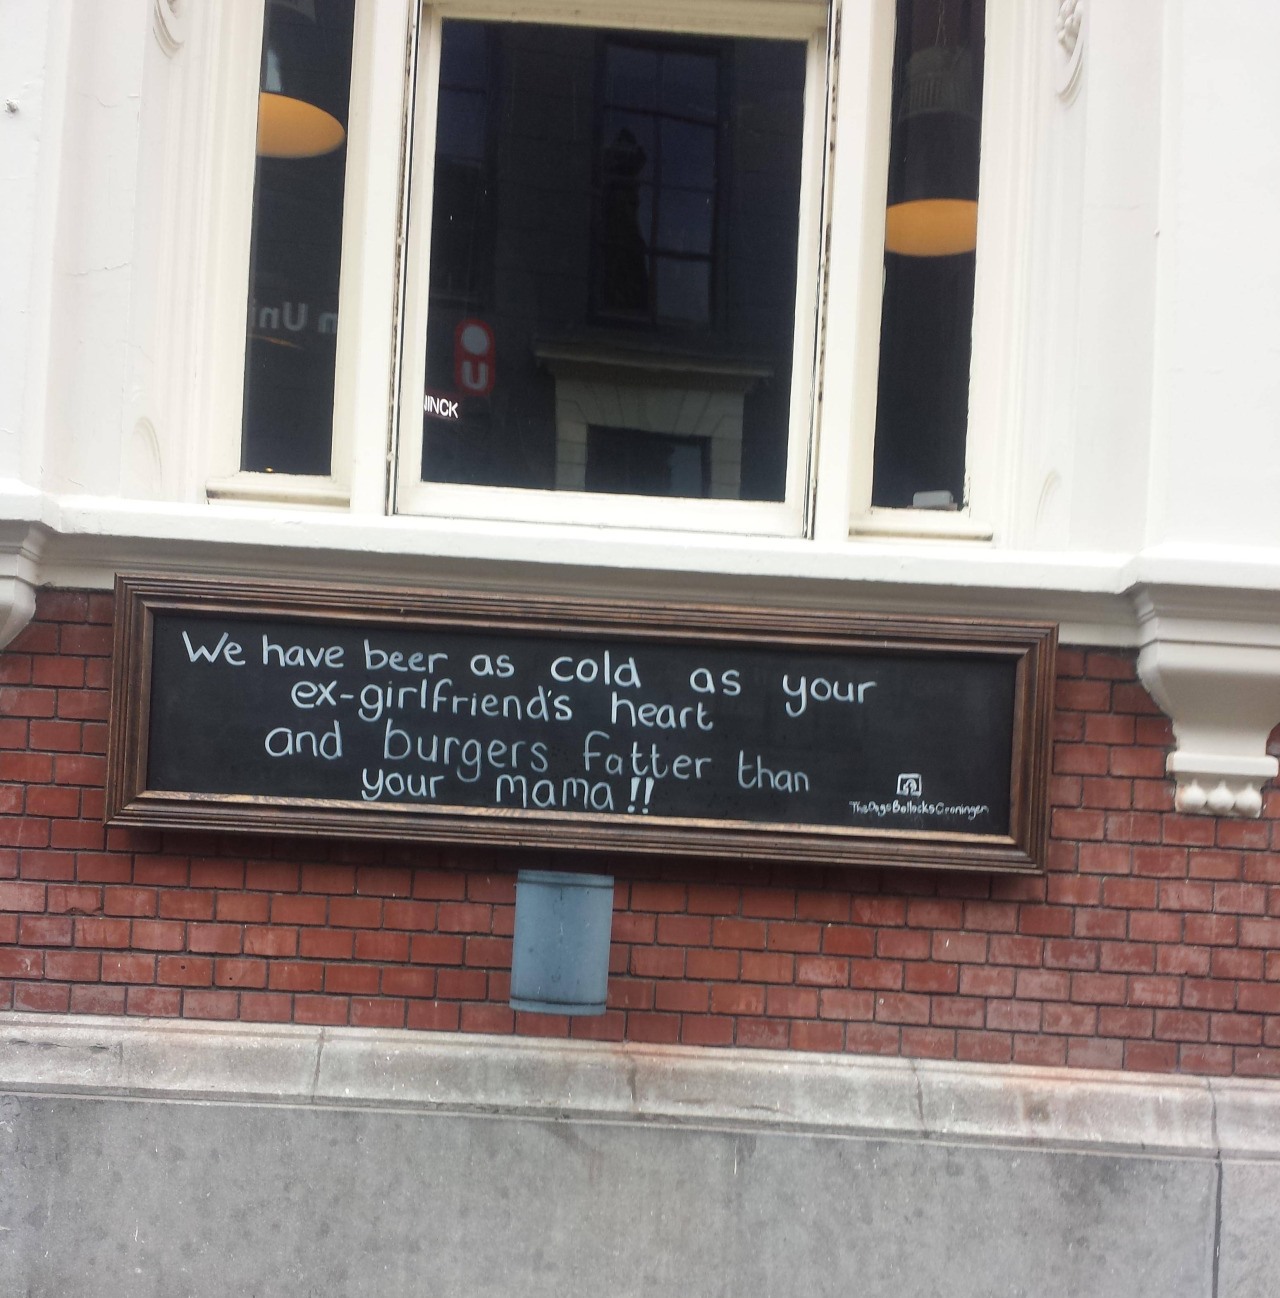 INCK
U
We have beer as cold as your
ex-girlfriend's heart
and burgers fatter than
your mama!!
TheDogsBollocksGroningen